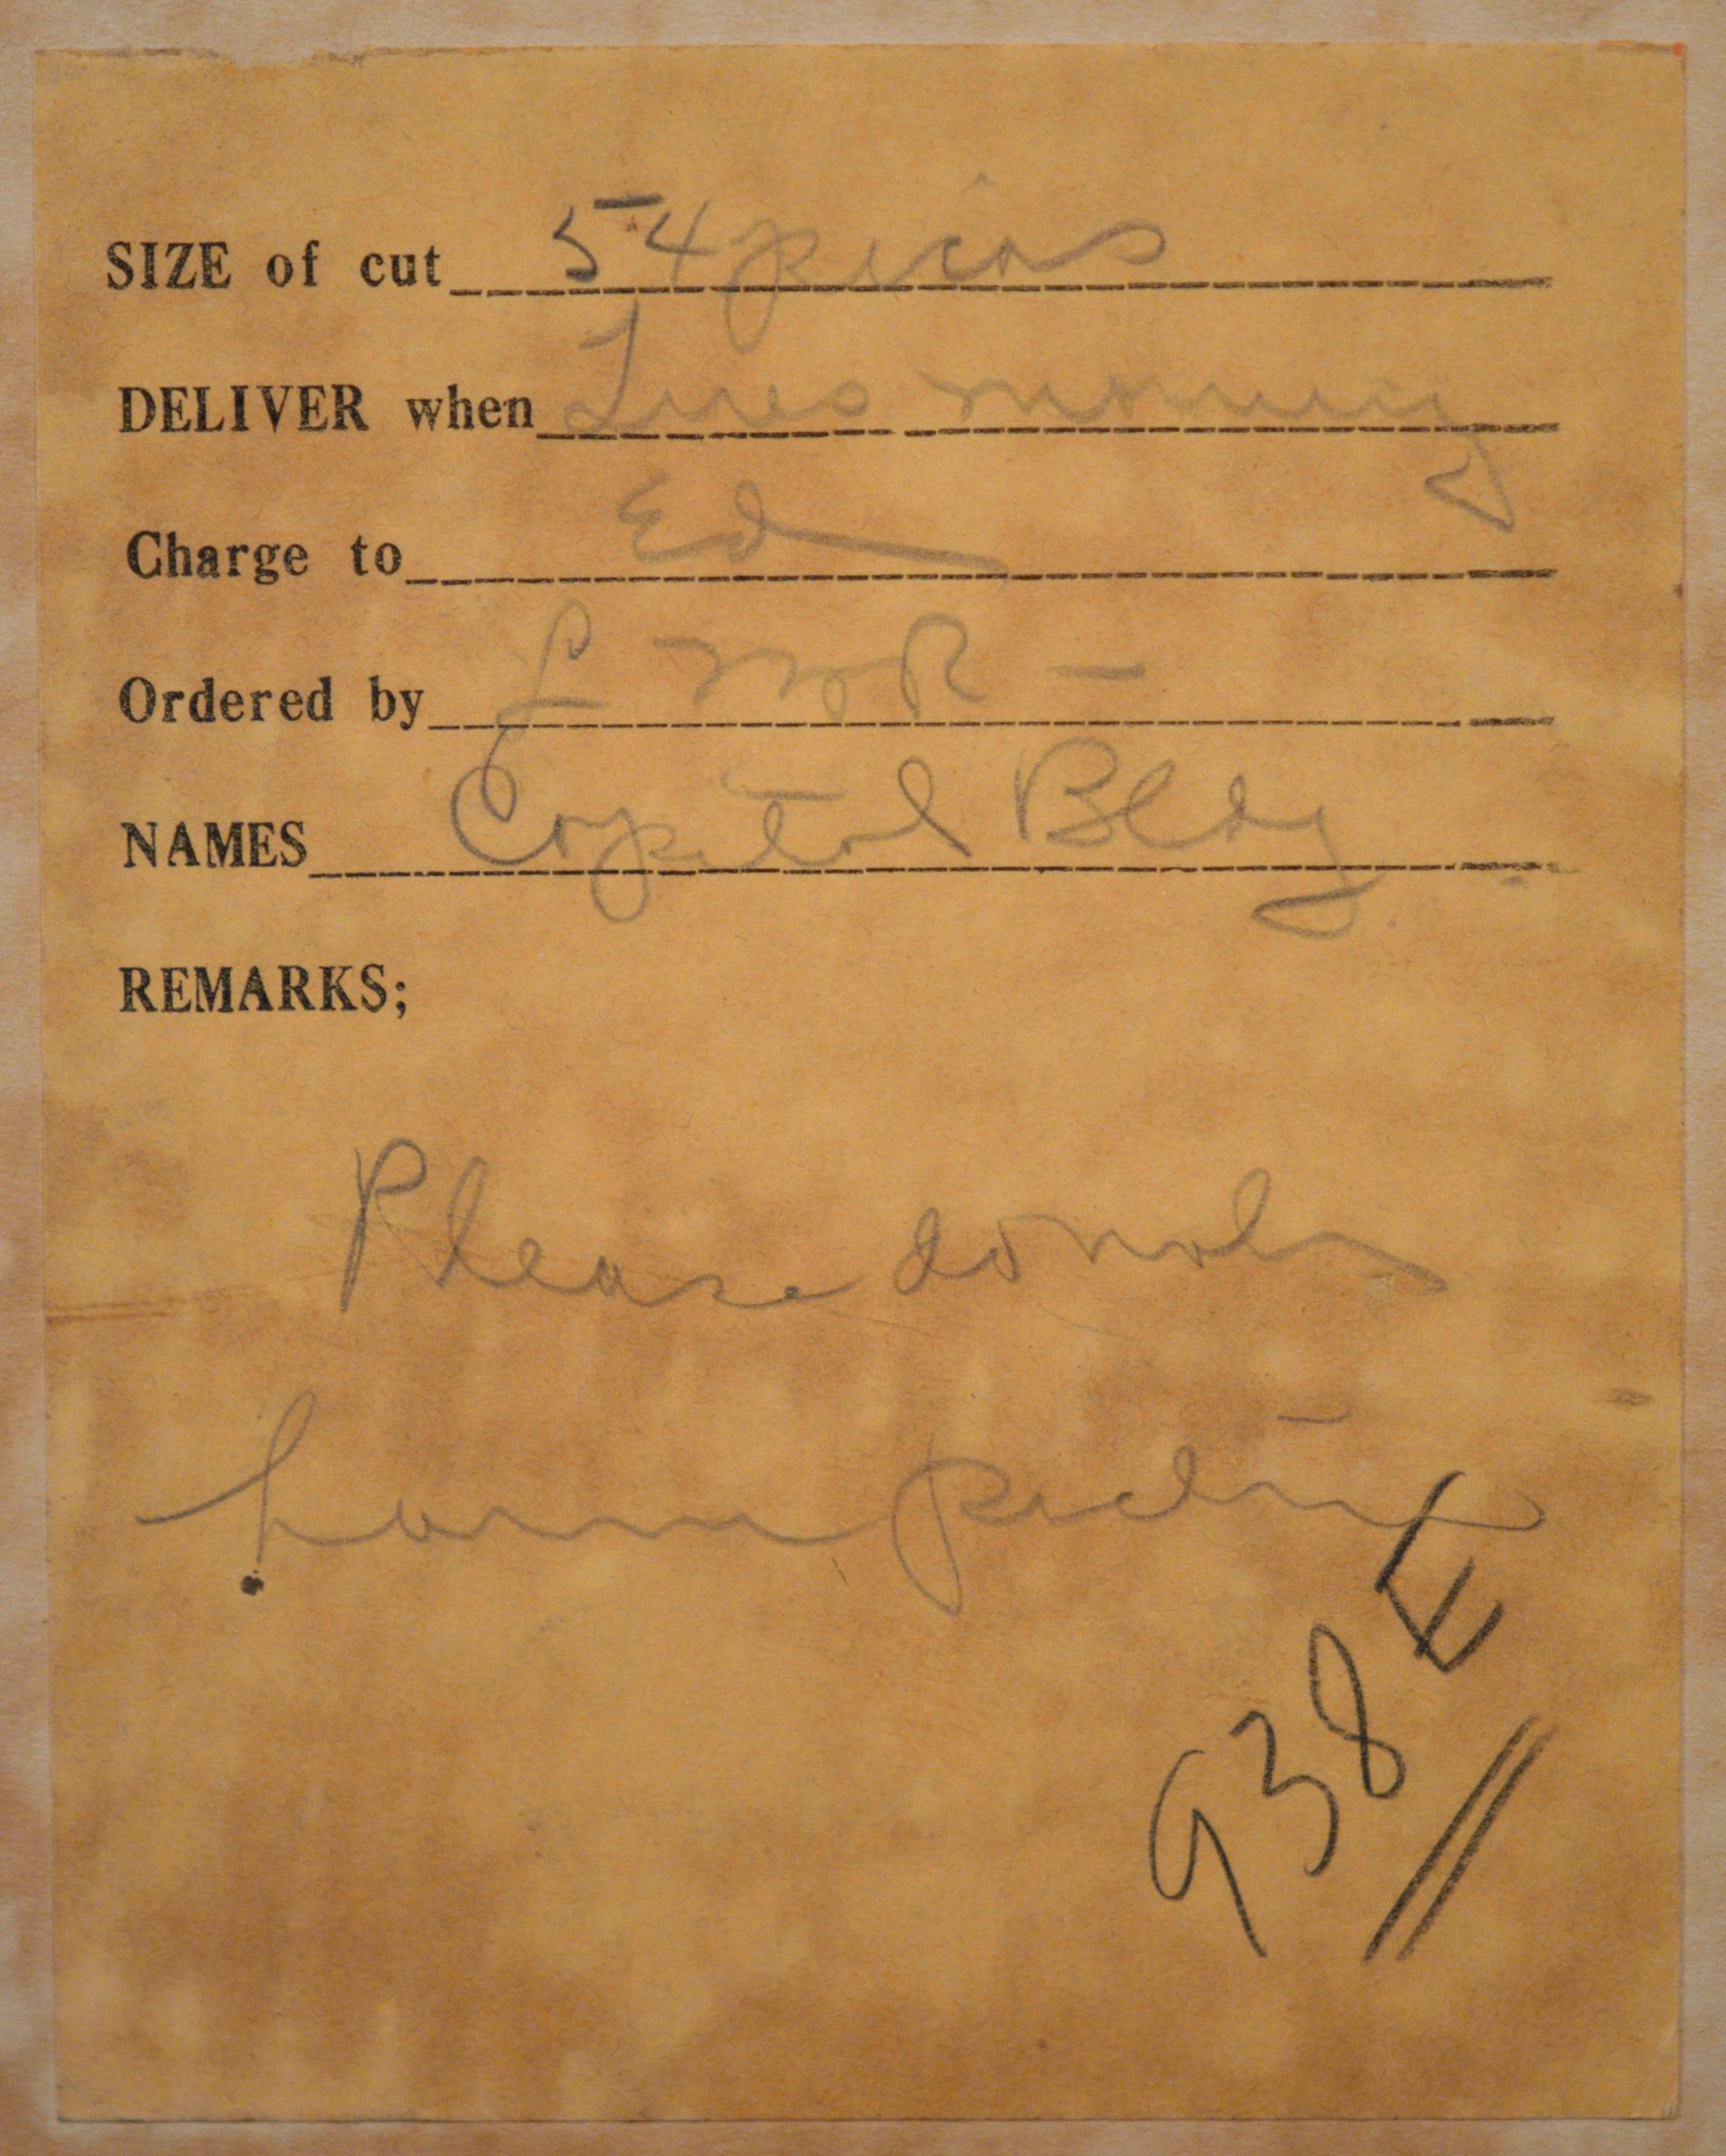 SIZE of cut 54 picas
DELIVER when Tues morning
Charge to Ed
Ordered by
NAMES Capitol Bldg
REMARKS;
Please do not
harm picture
938E